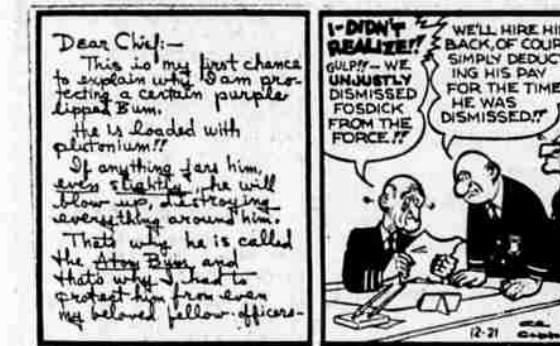 Dear Chief:—
This is my first chance
to explain why I am pro-
tecting a certain purple
lipped Bum.
He is loaded with
plutonium!!
If anything jars him,
even slightly, he will
blow up, destroying
everything around him.
Thats why he is called
the Atom Bum, and
thats why I had to
protect him from even
my beloved fellow-officers-
I-DIDN'T
REALIZE!!
GULP!!-WE
UNJUSTLY
DISMISSED
FOSDICK
FROM THE
FORCE!!
WE'LL HIRE HI
BACK, OF COU
SIMPLY DEDUCT
ING HIS PAY
FOR THE TIME
HE WAS
DISMISSED!!
12-21